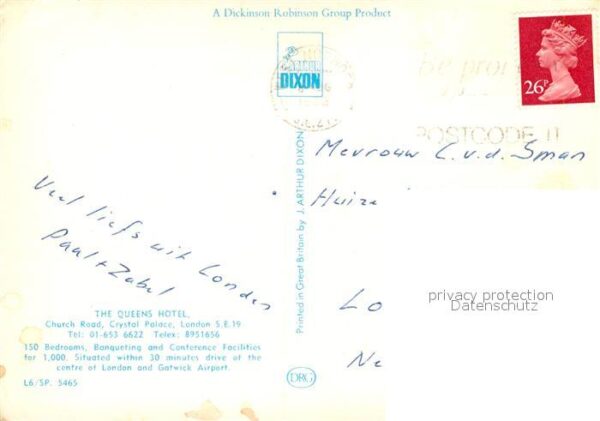 A Dickinson Robinson Group Product
ARTHUR
DIXON
26P
be pro
POSTCODE IT
Mevrouw C.v.d. Sman
Huize
Lo
Ne
Veel liefs uit Londen
Paul + Zabel
Printed in Great Britain by J. ARTHUR DIXON
privacy protection
Datenschutz
THE QUEENS HOTEL,
Church Road, Crystal Palace, London S.E.19
Tel: 01-653 6622 Telex: 8951656
150 Bedrooms, Banqueting and Conference Facilities
for 1,000. Situated within 30 minutes drive of the
centre of London and Gatwick Airport.
L6/SP. 5465
DRG